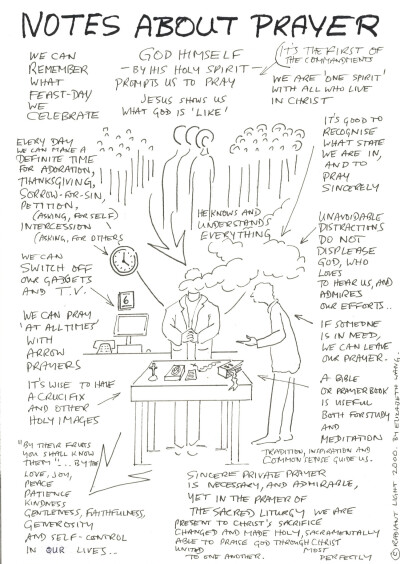 NOTES ABOUT PRAYER
WE CAN
REMEMBER
WHAT
FEAST-DAY
WE
CELEBRATE
GOD HIMSELF
- BY HIS HOLY SPIRIT -
PROMPTS US TO PRAY
JESUS SHOWS US
WHAT GOD IS 'LIKE'
IT'S THE FIRST OF
THE COMMANDMENTS
WE ARE 'ONE SPIRIT'
WITH ALL WHO LIVE
IN CHRIST
EVERY DAY
WE CAN MAKE A
DEFINITE TIME
FOR ADORATION,
THANKSGIVING,
SORROW-FOR-SIN,
PETITION,
(ASKING, FOR SELF)
INTERCESSION
(ASKING, FOR OTHERS
IT'S GOOD TO
RECOGNISE
WHAT STATE
WE ARE IN,
AND TO
PRAY
SINCERELY
HE KNOWS AND
UNDERSTANDS
EVERYTHING
UNAVOIDABLE
DISTRACTIONS
DO NOT
DISPLEASE
GOD, WHO
LOVES
TO HEAR US, AND
ADMIRES
OUR EFFORTS..
WE CAN
SWITCH OFF
OUR GADGETS
AND T.V.
6
WE CAN PRAY
'AT ALL TIMES'
WITH
ARROW
PRAYERS
IF SOMEONE
IS IN NEED,
WE CAN LEAVE
OUR PRAYER.
IT'S WISE TO HAVE
A CRUCIFIX
AND OTHER
HOLY IMAGES
A BIBLE
OR PRAYER BOOK
IS USEFUL
BOTH FOR STUDY
AND
MEDITATION
TRADITION, INSPIRATION AND
COMMON SENSE GUIDE US.
"BY THEIR FRUITS
YOU SHALL KNOW
THEM"... BY THE
LOVE, JOY,
PEACE
PATIENCE
KINDNESS
GENTLENESS, FAITHFULNESS,
GENEROSITY
AND SELF-CONTROL
IN OUR LIVES..
SINCERE PRIVATE PRAYER
IS NECESSARY, AND ADMIRABLE,
YET IN THE PRAYER OF
THE SACRED LITURGY WE ARE
PRESENT TO CHRIST'S SACRIFICE
CHANGED AND MADE HOLY, SACRAMENTALLY
ABLE TO PRAISE GOD THROUGH CHRIST
UNITED MOST
TO ONE ANOTHER. PERFECTLY
© RADIANT LIGHT 2000. BY ELIZABETH WANG.